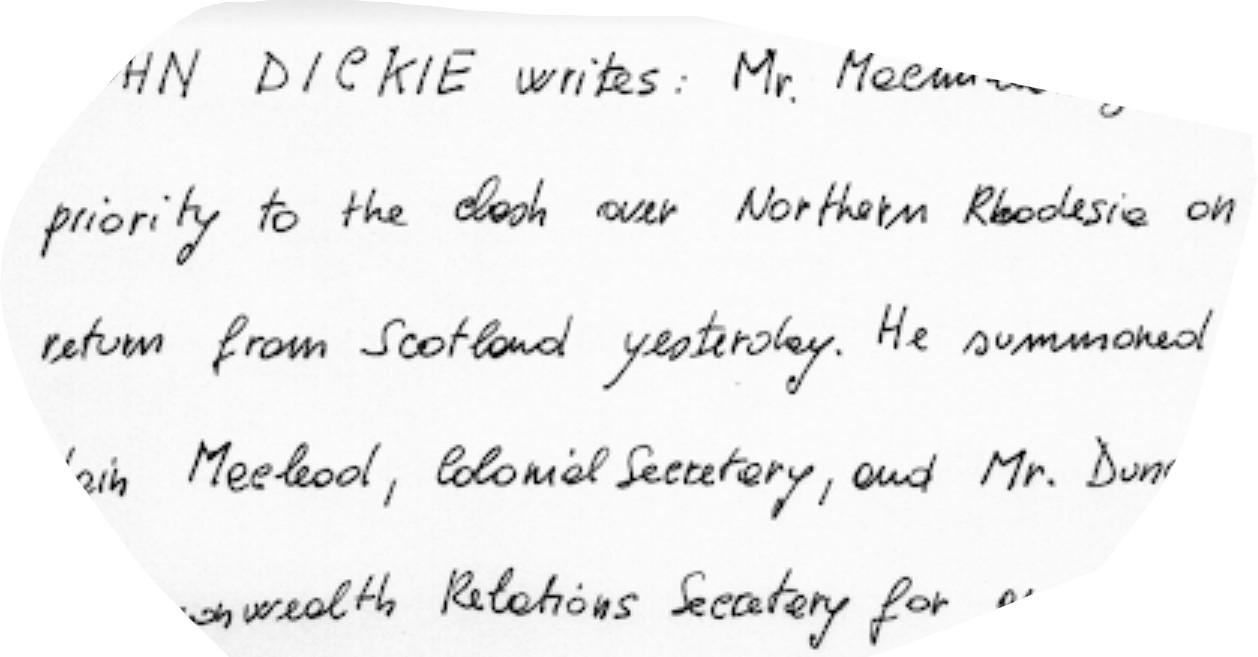 HN DICKIE writes: Mr.
priority to the clash over Northern Rhodesia on
return from Scotland yesterday. He summoned
ain Macleod, Colonial Secretary, and Mr.
wealth Relations Secretary for